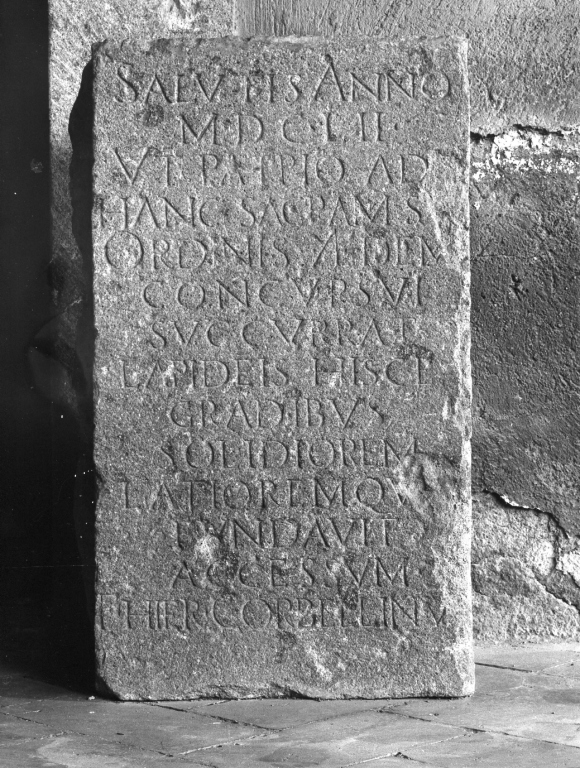 SALVTIS ANNO
M·D·C·LII·
VT PATRIO AD
HANC SACRAM S
ORDINIS ÆDEM
CONCVRSVI
SVCCVRRAT
LAPIDEIS HISCE
GRADIBVS
SOLIDIOREM
LATIOREMQV
FVNDAVIT
ACCESSVM
F HIER CORBELLINV